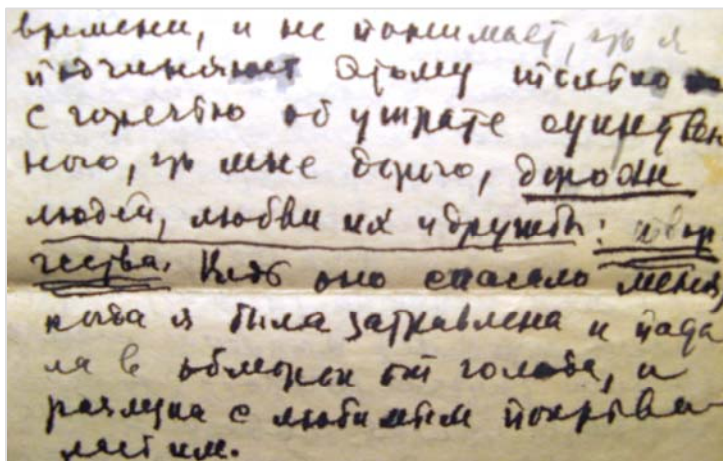 времени, и не понимает, что я
подчиняюсь этому только
с горечью об утрате единствен
ного, что мне дорого, дороже
людей, любви их и дружбы: твор
чества. Ведь оно спасало меня,
когда я была затравлена и пада
ла в обморок от голода, и
разлука с любимым покрыва
лась им.